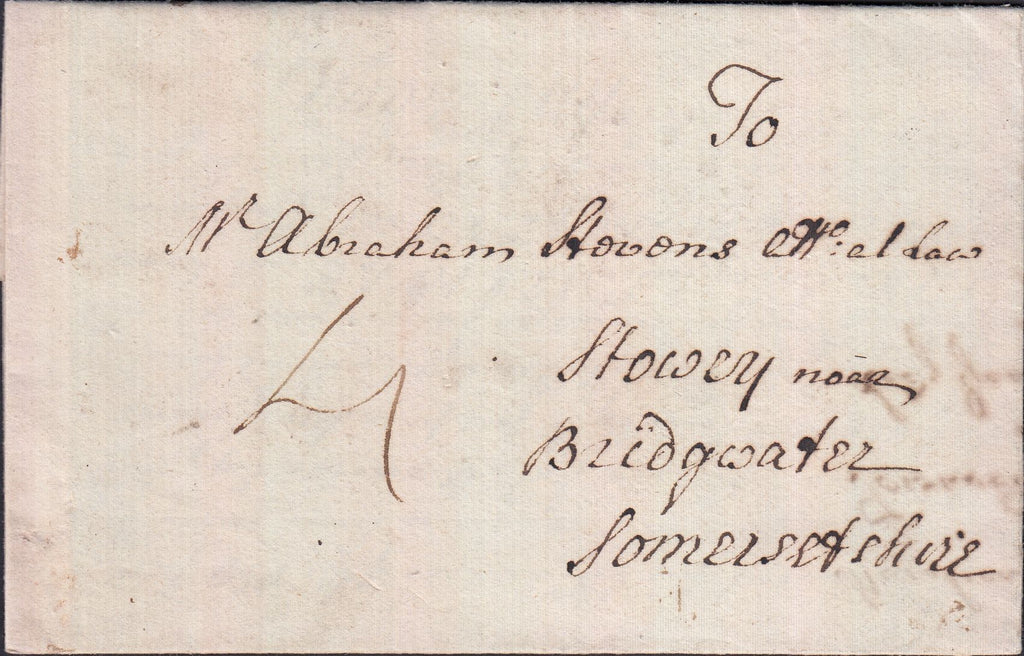 To
Mr Abraham Stevens Atto: at Law
Stowey near
Bridgwater
Somersetshire
4